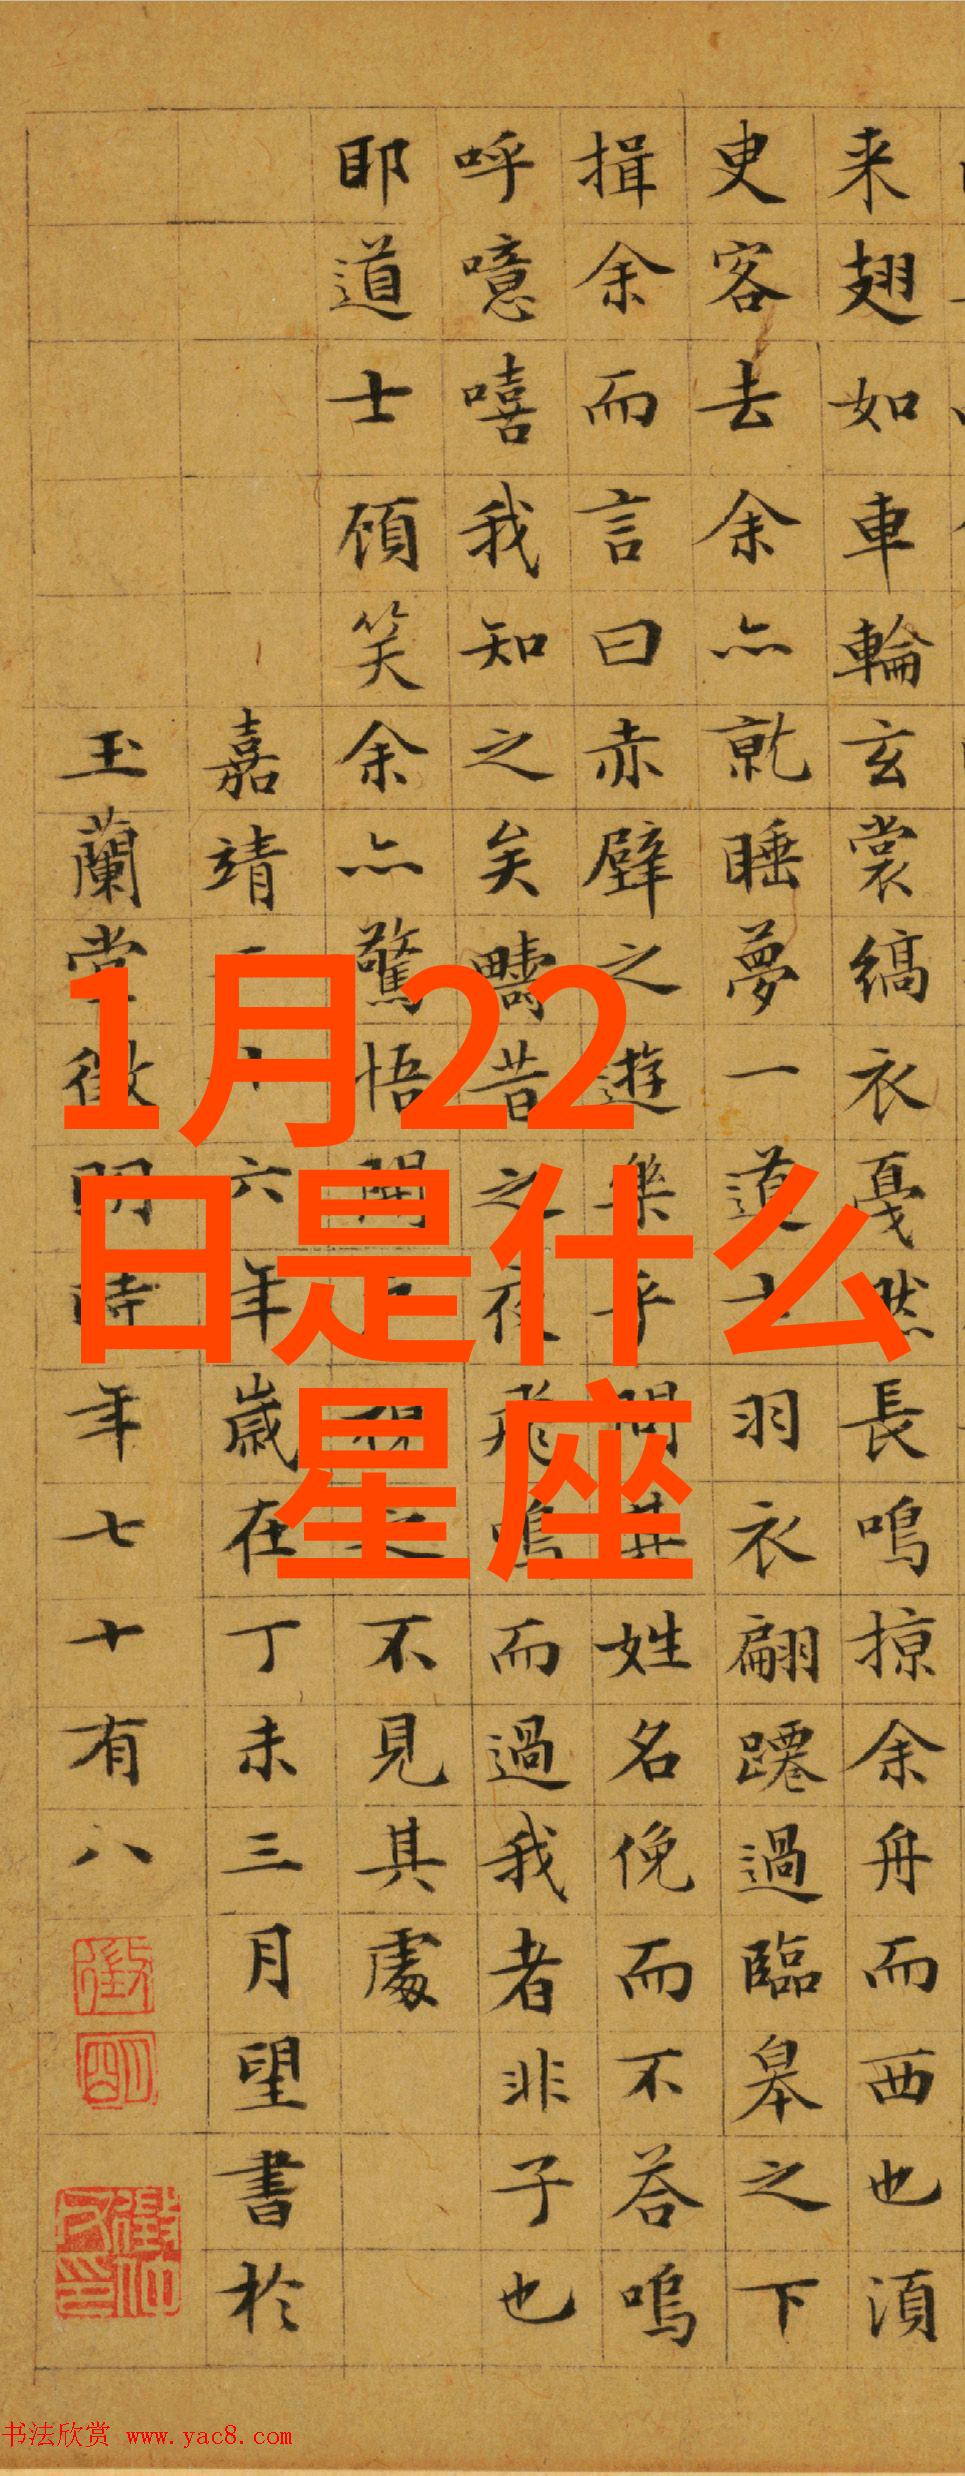 来翅如車輪玄裳縞衣戛然長鳴掠余舟而西也湏
臾客去余亦就睡夢一道士羽衣翩躚過臨皋之下
揖余而言曰赤壁之遊樂乎問其姓名俛而不答嗚
呼噫嘻我知之矣疇昔之夜飛鳴而過我者非子也
耶道士顧笑余亦驚悟開户視之不見其處
嘉靖二十六年歲在丁未三月望書於
玉蘭堂徵明時年七十有八
徵
明
1月22
日是什么
星座
书法欣赏 www.yac8.com